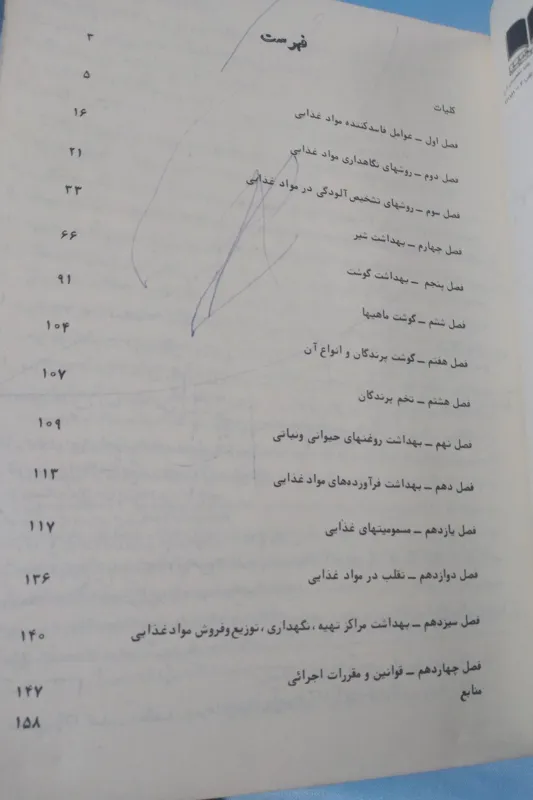 فهرست
کلیات ۳
فصل اول ــ عوامل فاسدکننده مواد غذایی ۵
فصل دوم ــ روشهای نگاهداری مواد غذایی ۱۶
فصل سوم ــ روشهای تشخیص آلودگی در مواد غذایی ۲۱
فصل چهارم ــ بهداشت شیر ۳۳
فصل پنجم ــ بهداشت گوشت ۶۶
فصل ششم ــ گوشت ماهیها ۹۱
فصل هفتم ــ گوشت پرندگان و انواع آن ۱۰۴
فصل هشتم ــ تخم پرندگان ۱۰۷
فصل نهم ــ بهداشت روغنهای حیوانی ونباتی ۱۰۹
فصل دهم ــ بهداشت فرآورده‌های مواد غذایی ۱۱۳
فصل یازدهم ــ مسمومیتهای غذایی ۱۱۷
فصل دوازدهم ــ تقلب در مواد غذایی ۱۳۶
فصل سیزدهم ــ بهداشت مراکز تهیه ، نگهداری ، توزیع وفروش مواد غذایی ۱۴۰
فصل چهاردهم ــ قوانین و مقررات اجرائی ۱۴۷
منابع ۱۵۸